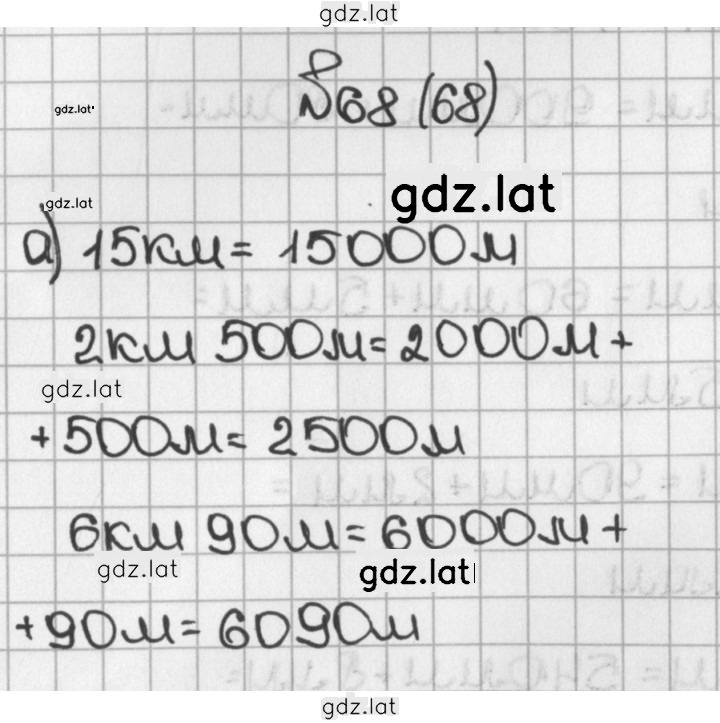 gdz.lat
№68 (68)
gdz.lat
gdz.lat
gdz.lat
а) 15км= 15000м
2км 500м= 2000м+
gdz.lat
+500м= 2500м
6км 90м= 6000м+
gdz.lat
gdz.lat
+90м= 6090м
gdz.lat